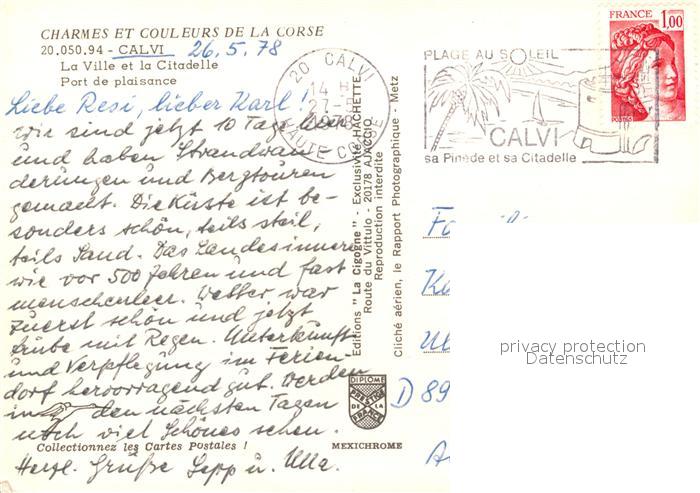 CHARMES ET COULEURS DE LA CORSE
20.050.94 - CALVI 26.5.78
La Ville et la Citadelle
Port de plaisance
Liebe Resi, lieber Karl!
wir sind jetzt 10 Tage hier
und haben Strandwan
derungen und Bergtouren
gemacht. Die Küste ist be-
sonders schön, teils steil,
teils Sand. Das Landesinnere
wie vor 500 Jahren und fast
menschenleer. Wetter war
zuerst schön und jetzt
trübe mit Regen. Unterkunft
und Verpflegung im Ferien-
dorf hervorragend gut. Werden
in den nächsten Tagen
noch viel Schönes sehen.
Collectionnez les Cartes Postales !
MEXICHROME
Herzl. Grüße Sepp u. Ulla.
Editions "La Cigogne" - Exclusivité HACHETTE
Route du Vittulo - 20178 AJACCIO
Reproduction interdite
Cliché aérien, le Rapport Photographique - Metz
DIPLOME
PRESTIGE
DE LA
FRANCE
20 CALVI
14 H
27-
1978
HAUTE CORSE
PLAGE AU SOLEIL
CALVI
sa Pinède et sa Citadelle
FRANCE 1,00
POSTES
D 89
privacy protection
Datenschutz